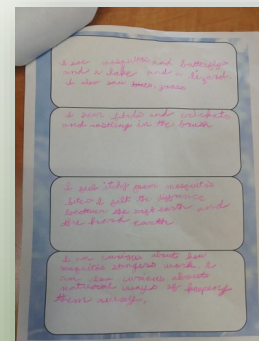 I saw mosquitos and butterflys
and a lake and a lizard.
I also saw trees, grass
I hear birds and crickets
and rustling in the brush
I felt itchy from mosquito
bites I felt the
between the soft earth and
the hard earth
I am curious about how
mosquitos stingers work. I
am also curious about
natural ways of keeping
them away.